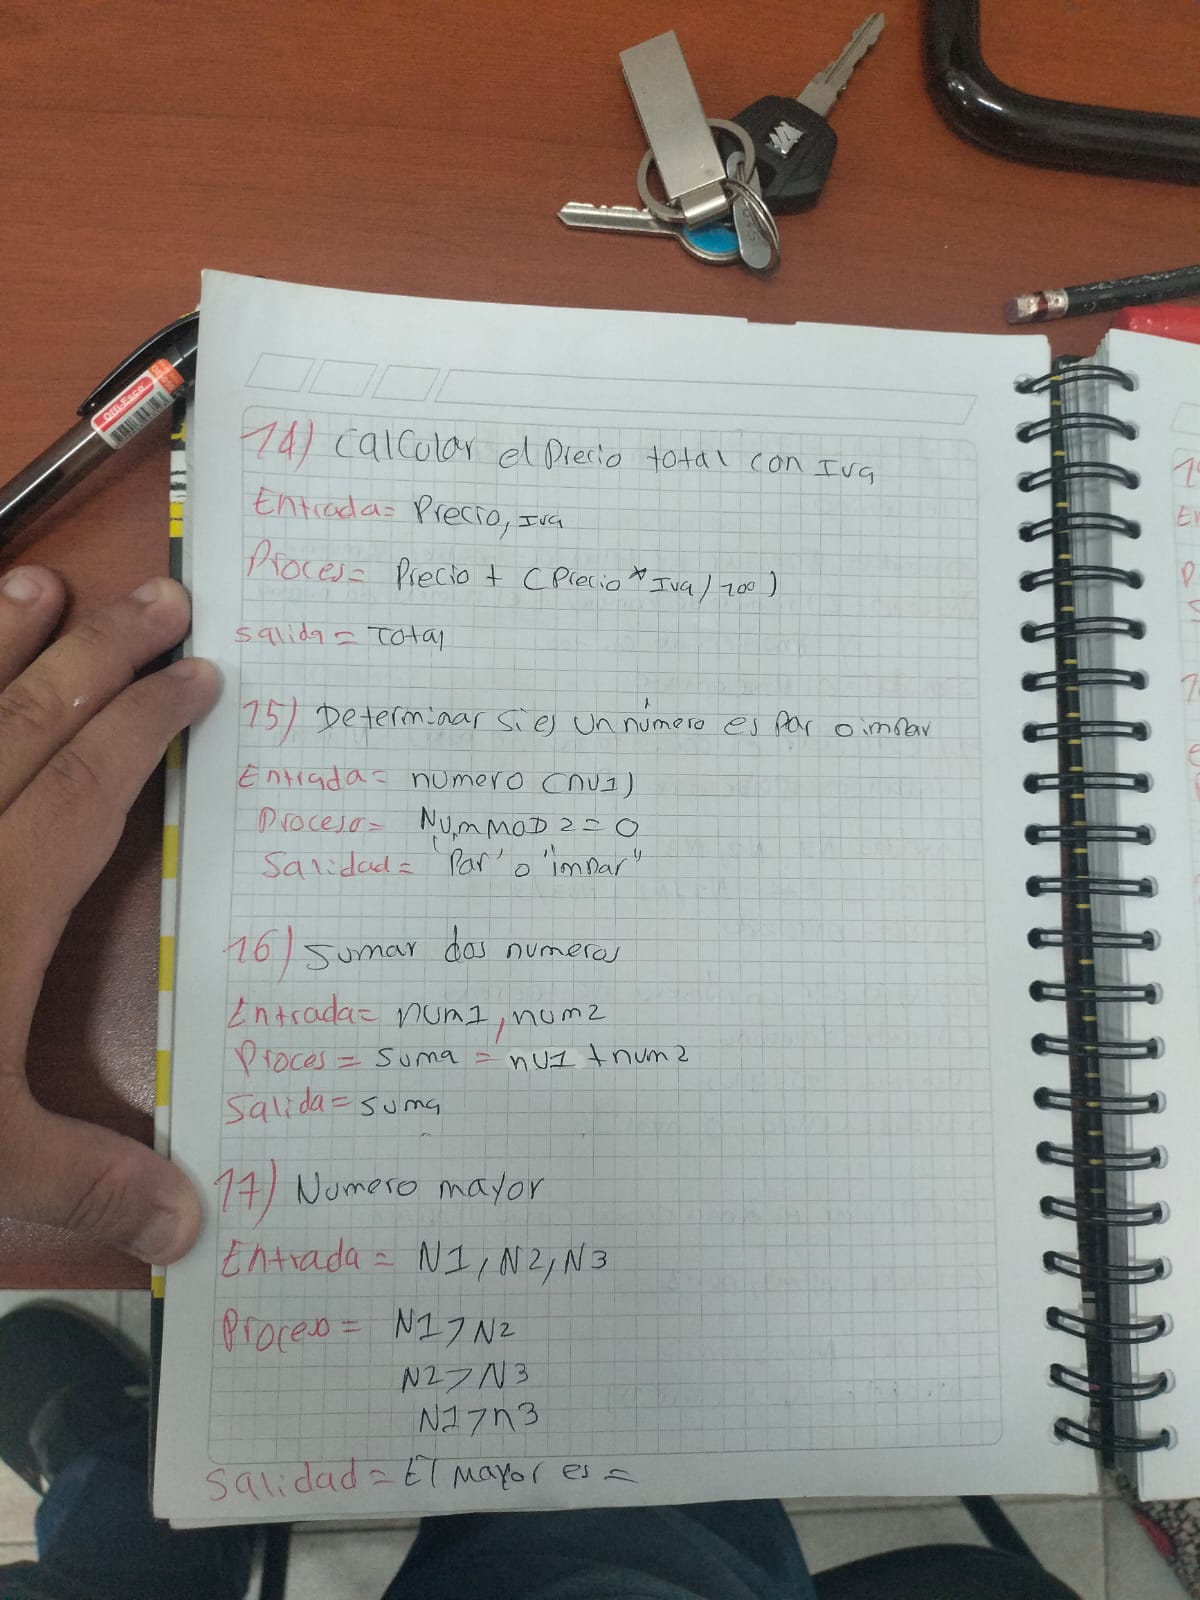 Offi-Esco
14) Calcular el Precio total con Iva
Entrada= Precio, Iva
Proces= Precio + (Precio * Iva / 100)
salida = Total
15) Determinar si es un número es Par o impar
Entrada= numero (nu1)
Proceso= Num MOD 2 = 0
Salidad= "Par" o "impar"
16) Sumar dos numeros
Entrada= num1, num2
Proces = suma = nu1 + num2
Salida= suma
17) Numero mayor
Entrada = N1, N2, N3
Proceso = N1 > N2
N2 > N3
N1 > n3
Salidad = El mayor es =